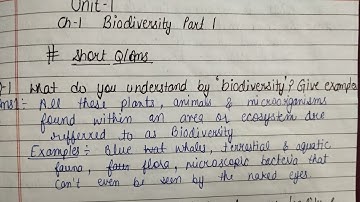 Unit-1
Ch-1 Biodiversity Part 1
# Short Q/Ans
-1 What do you understand by 'biodiversity'? Give example
Ans1:- All these plants, animals & microorganisms
found within an area or ecosystem are
refferred to as Biodiversity
Examples:- Blue whales, terrestial & aquatic
fauna, flora, microscopic bacteria that
can't even be seen by the naked eyes.